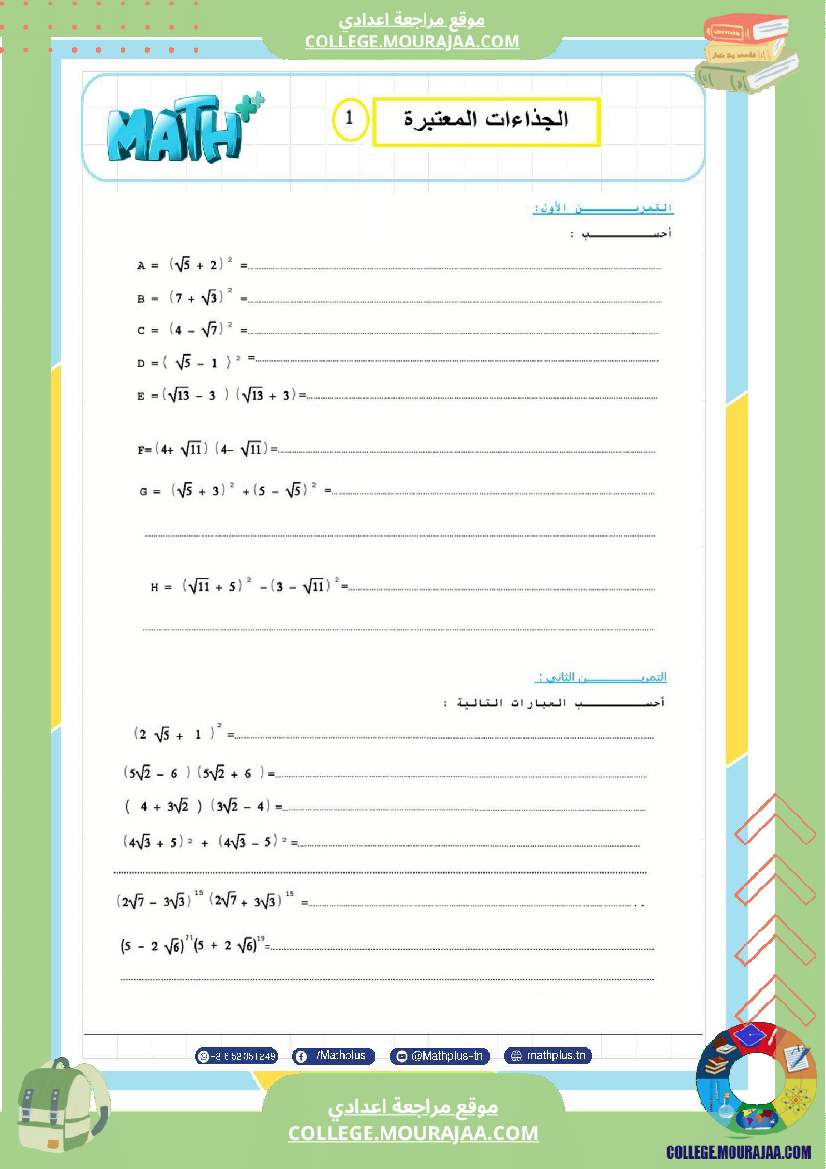 موقع مراجعة اعدادي
COLLEGE.MOURAJAA.COM
MATH++
الجذاءات المعتبرة 1
التمريـــــن الأول:
أحســــــب :
A = (√5 + 2)² =
B = (7 + √3)² =
C = (4 − √7)² =
D = ( √5 − 1 )² =
E = (√13 − 3 ) (√13 + 3)=
F= (4+ √11) (4− √11)=
G = (√5 + 3)² +(5 − √5)² =
H = (√11 + 5)² −(3 − √11)²=
التمريـــــن الثاني :
أحســــــب العبارات التالية :
(2 √5 + 1 )² =
(5√2 − 6 ) (5√2 + 6 )=
( 4 + 3√2 ) (3√2 − 4) =
(4√3 + 5)² + (4√3 − 5)² =
(2√7 − 3√3)¹⁵ (2√7 + 3√3)¹⁵ =
(5 − 2 √6)²¹(5 + 2 √6)¹⁹=
/Mathplus
@Mathplus-tn
mathplus.tn
موقع مراجعة اعدادي
COLLEGE.MOURAJAA.COM
COLLEGE.MOURAJAA.COM